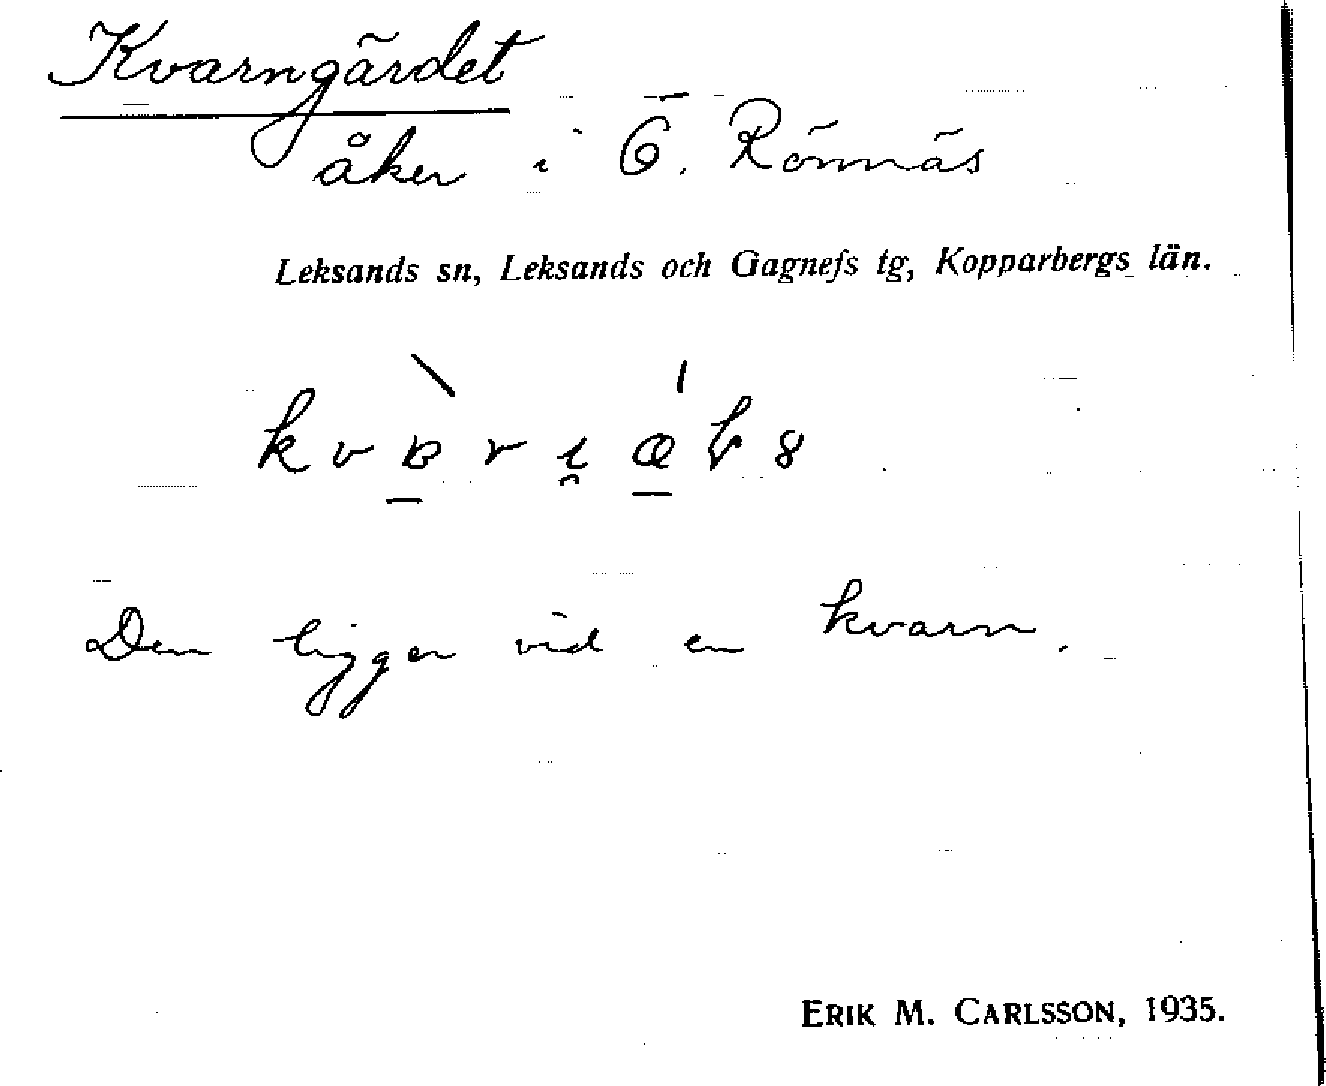 Kvarngärdet
åker i Ö. Rönnäs
Leksands sn, Leksands och Gagnefs tg, Kopparbergs län.
Den ligger vid en kvarn.
ERIK M. CARLSSON, 1935.